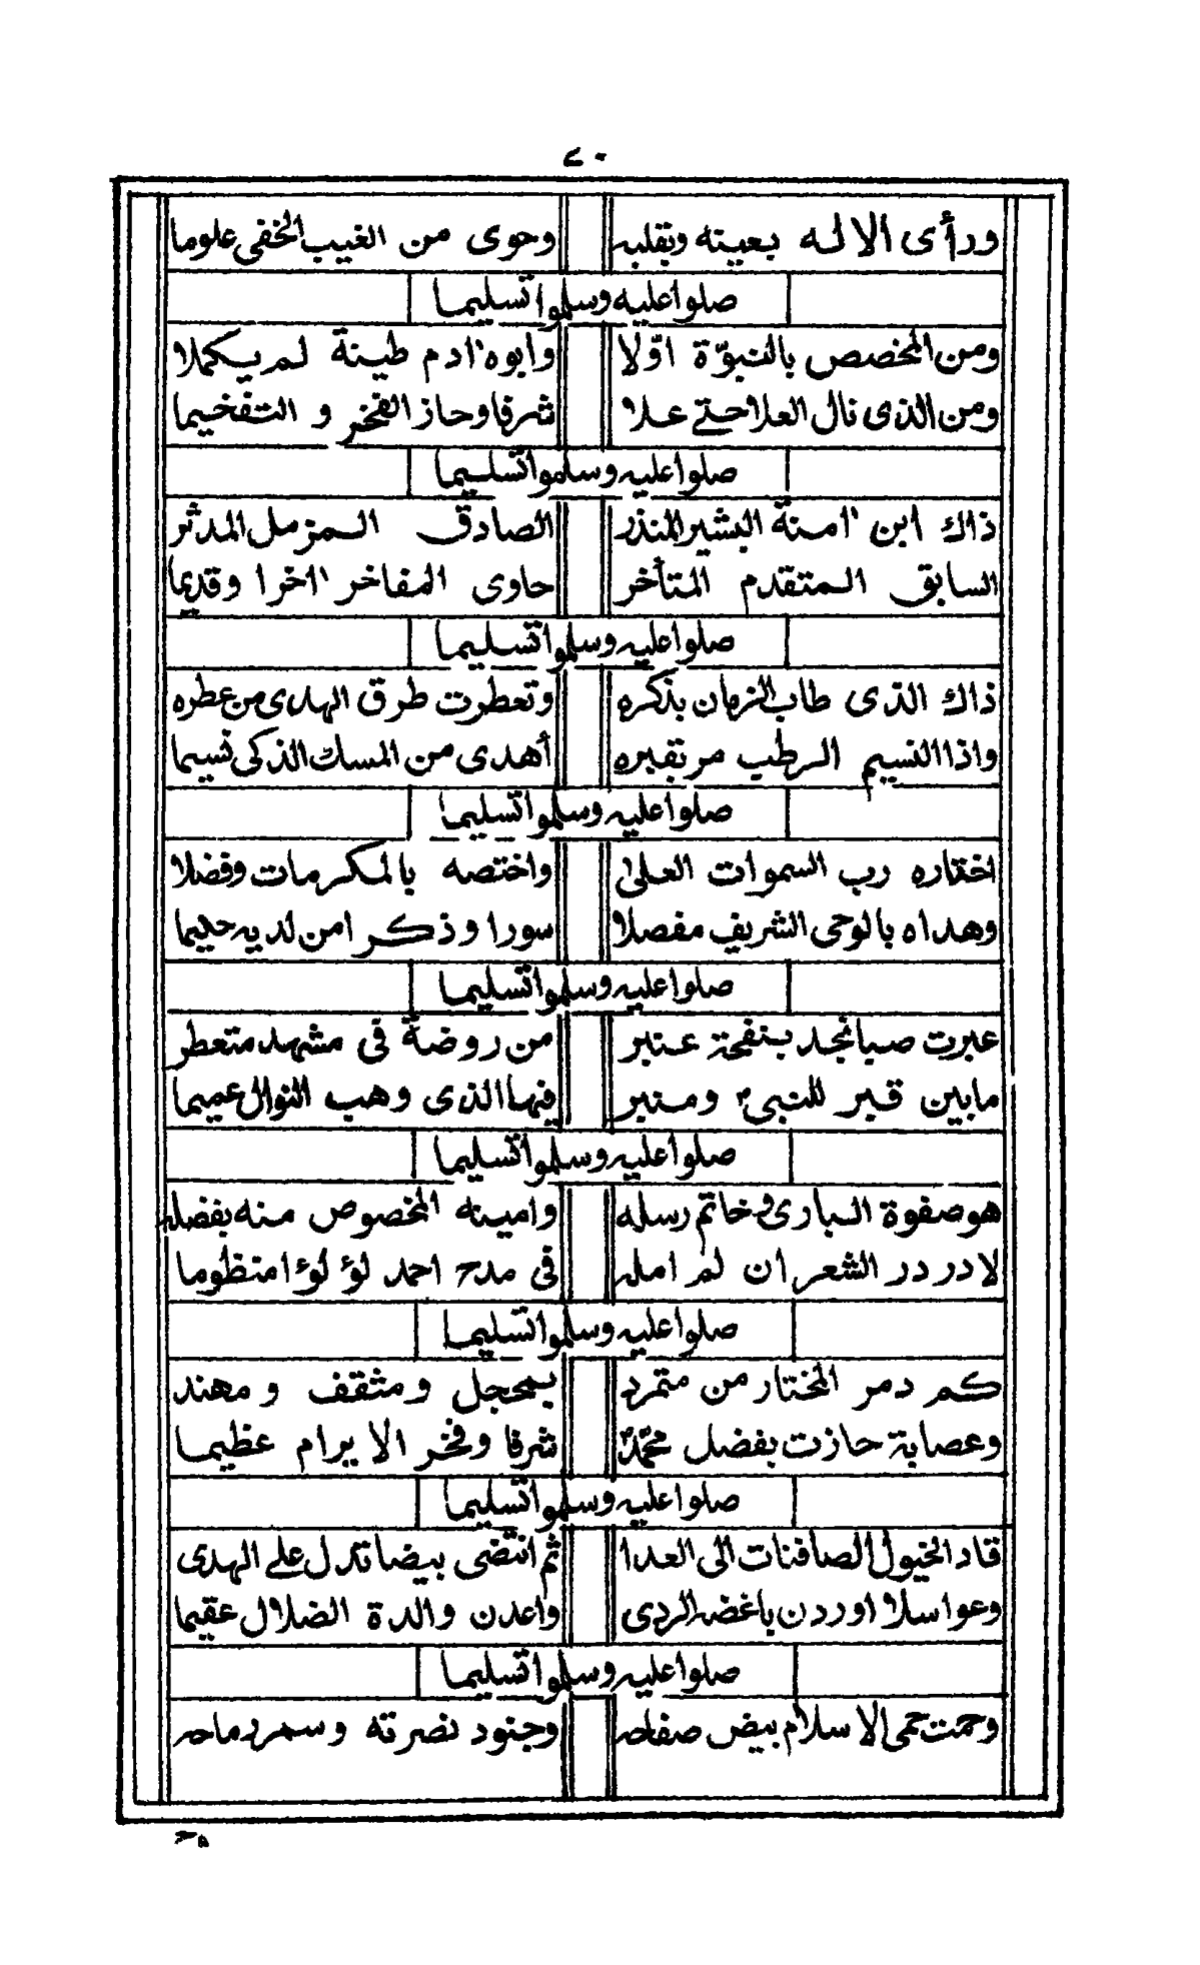 ٤٠
ورأى الاله بعينه وبقلبه وحوى من الغيب الخفى علوما
صلوا عليه وسلموا تسليما
ومن المخصص بالنبوّة اوّلا وابوه ادم طينة لم يكملا
ومن الذى نال العلا حتى علا شرفا وحاز الفخر و التفخيما
صلوا عليه وسلموا تسليما
ذاك ابن امنة البشير المنذر الصادق المزمل المدثر
السابق المتقدم المتأخر حاوى المفاخر اخرا وقديما
صلوا عليه وسلموا تسليما
ذاك الذى طاب الزمان بذكره وتعطرت طرق الهدى من عطره
واذا النسيم الرطب مر بقبره أهدى من المسك الذكى نسيما
صلوا عليه وسلموا تسليما
اختاره رب السموات العلى واختصه بالمكرمات وفضلا
وهداه بالوحى الشريف مفصلا سورا وذكرا من لديه حكيما
صلوا عليه وسلموا تسليما
عبرت صبا نجد بنفحة عنبر من روضة فى مشهد متعطر
مابين قبر للنبى ومنبر فيها الذى وهب النوال عميما
صلوا عليه وسلموا تسليما
هو صفوة البارى وخاتم رسله وامينه المخصوص منه بفضله
لا در در الشعر ان لم امله فى مدح احمد لؤلؤءا منظوما
صلوا عليه وسلموا تسليما
كم دمر المختار من متمرد بمحجل ومثقف ومهند
وعصابة حازت بفضل محمد شرفا وفخر الا يرام عظيما
صلوا عليه وسلموا تسليما
قاد الخيول الصافنات الى العدا ثم انتضى بيضا تدل على الهدى
وعواسلا اوردن باغضه الردى واعدن والدة الضلال عقيما
صلوا عليه وسلموا تسليما
وحمت حمى الاسلام بيض صفاحه وجنود نصرته وسمر رماحه